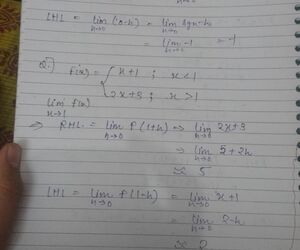 LHL = lim h→0 (0-h) = lim h→0
= lim h→0 -1 = -1
Q. f(x) = { x+1 ; x<1
2x+3 ; x>1
lim x→1 f(x)
⇒ RHL = lim h→0 f(1+h) ⇒ lim h→0 2x+3
⇒ lim h→0 5+2h
≈ 5
LHL = lim h→0 f(1-h) = lim h→0 x+1
= lim h→0 2-h
≈ 2